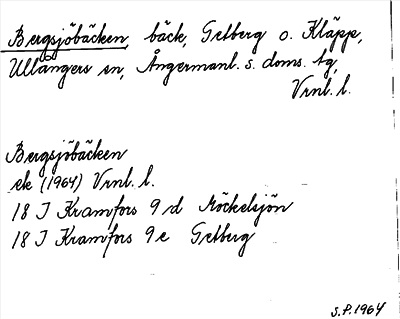 Bergsjöbäcken, bäck, Getberg o. Kläppe,
Ullångers sn, Ångermanl. s. doms. tg,
Vrnl. l.
Bergsjöbäcken
ek (1964) Vrnl. l.
18 J Kramfors 9 d Möckelsjön
18 J Kramfors 9 e Getberg
S.P. 1964